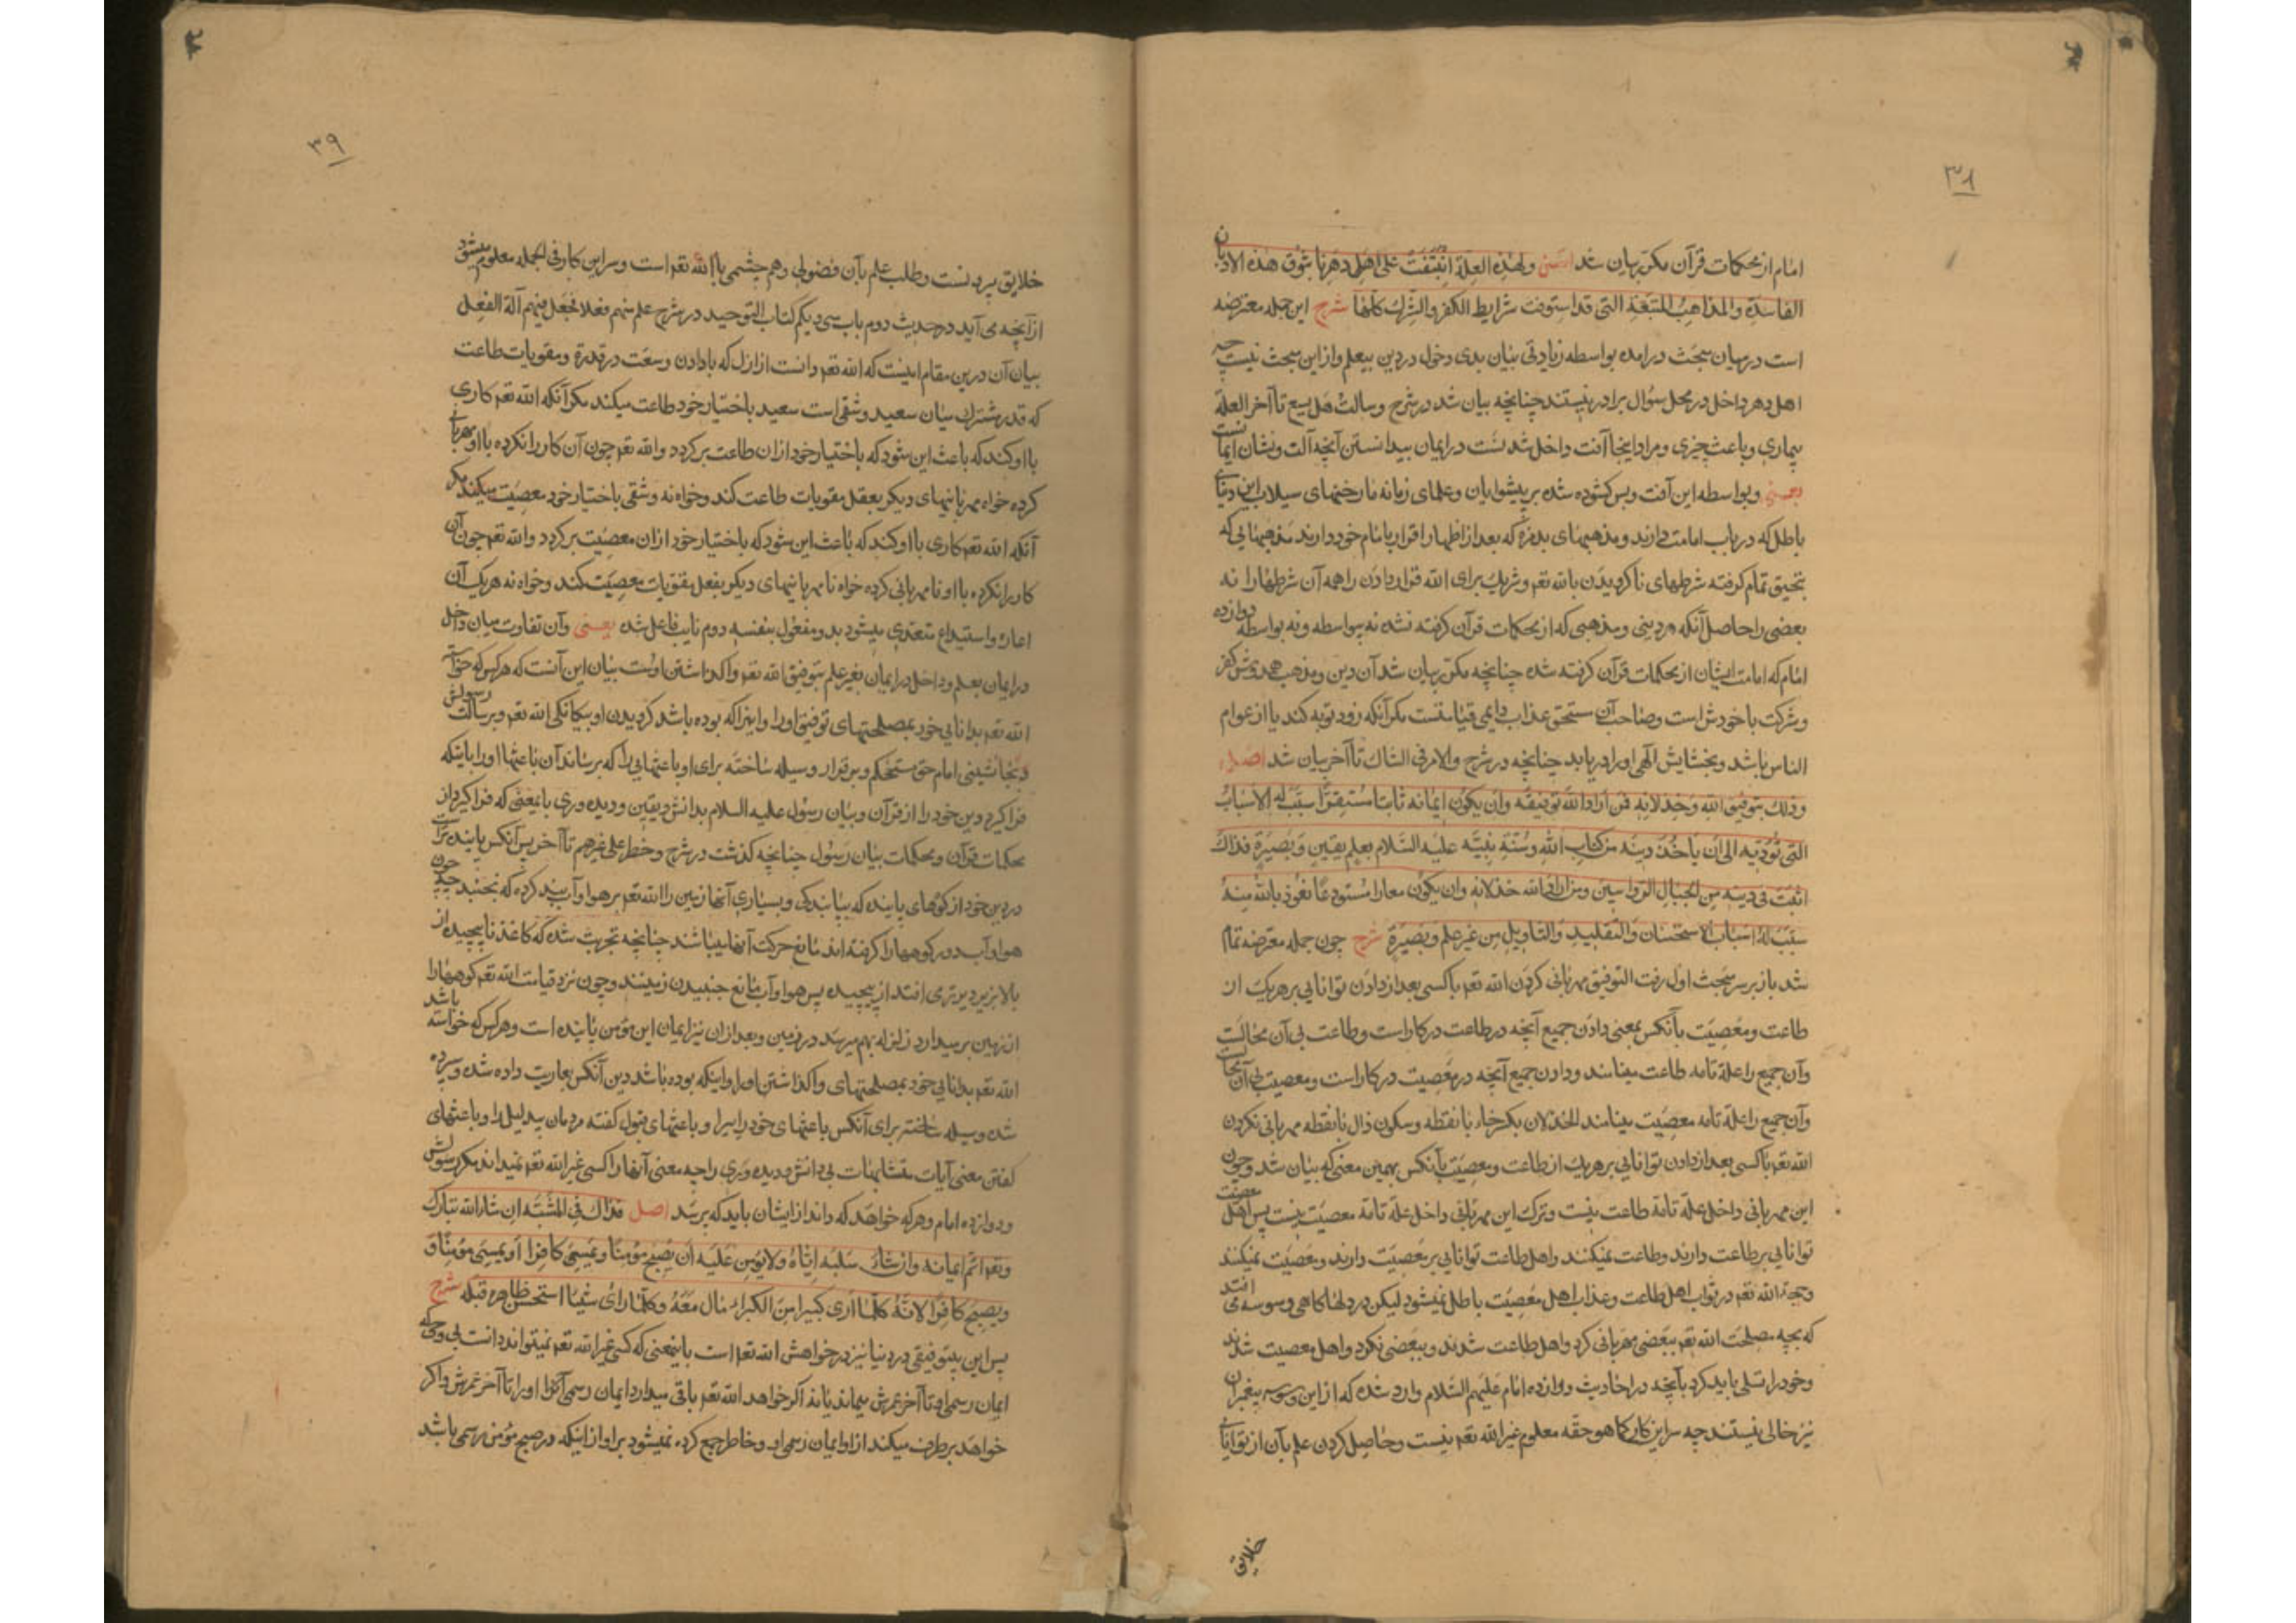 ۳۸
امام از محکمات قرآن مکرّر بیان شد اصل ولهذه العلة انبثقت علی اهل دهرنا بثوق هذه الادیان
الفاسدة والمذاهب المستبشعة التی قد استوفت شرایط الکفر والشرک کلها شرح این جمله معترضه
است در میان مبحث درآمده بواسطه زیادتی بیان بدی دخول در دین بیعلم و از این مبحث نیست چه
اهل دهر داخل در محل سؤال برادر نیستند چنانچه بیان شد در شرح وسالت هل یسع تا آخر العلة
بیماری و باعث چیزی و مراد اینجا آفت داخل شدنست در ایمان بیدانستن آنچه آلت و نشان ایمانست
یعنی و بواسطه این آفت و بس کشوده شده بر پیشوایان و علمای زمانه ما رختهای سیلاب این دینهای
باطل که در باب امامت دارند و مذهبهای بدمزه که بعد از اظهار اقرار بامام خود دارند مذهبهایی که
بتحقیق تمام کرفته شرطهای ناکرویدن بالله تعم و شریک برای الله قرار دادن را همه آن شرطها را نه
بعضی را حاصل آنکه هر دینی و مذهبی که از محکمات قرآن کرفته نشده نه بیواسطه و نه بواسطه دوازده
امام که امامت ایشان از محکمات قرآن کرفته شده چنانچه مکرّر بیان شد آن دین و مذهب همدوش کفر
و شرکت با خودش است و صاحب آن مستحق عذاب دایمی قیامتست مکر آنکه زود توبه کند یا از عوام
الناس باشد و بخشایش الهی او را دریابد چنانچه در شرح والامر فی الشاک تا آخر بیان شد اصل
وذلک بتوفیق الله وخذلانه فمن اراد الله توفیقه وان یکون ایمانه ثابتا مستقرا سبّب له الاسباب
التی تؤدّیه الی ان یأخذ دینه من کتاب الله وسنّة نبیّه علیه السلام بعلم یقین وبصیرة فذاک
اثبت فی دینه من الجبال الرواسی ومن اراد الله خذلانه وان یکون معارا مستودعا نعوذ بالله منه
سبّب له اسباب الاستحسان والتقلید والتأویل من غیر علم وبصیرة شرح چون جمله معترضه تمام
شد باز بر سر مبحث اول رفت التوفیق مهربانی کردن الله تعم با کسی بعد از دادن توانایی بر هریک از
طاعت و معصیت بآنکس بمعنی دادن جمیع آنچه در طاعت در کار است و طاعت بی آن محالست
وآن جمیع را علة تامه طاعت مینامند و دادن جمیع آنچه در معصیت در کار است و معصیت بی آن محالست
وآن جمیع را علّة تامه معصیت مینامند الخذلان بکسر خاء با نقطه و سکون ذال با نقطه مهربانی نکردن
الله تعم با کسی بعد از دادن توانایی بر هریک از طاعت و معصیت بآنکس بهمین معنی که بیان شد و چون
این مهربانی داخل علّة تامّة طاعت نیست و ترک این مهربانی داخل علّة تامّة معصیت نیست پس اهل معصیت
توانایی بر طاعت دارند و طاعت نمیکنند و اهل طاعت توانایی بر معصیت دارند و معصیت نمیکنند
وحجة الله تعم در ثواب اهل طاعت و عذاب اهل معصیت باطل نمیشود لیکن در دلها کاهی وسوسه می افتد
که بچه مصلحت الله تعم ببعضی مهربانی کرد و اهل طاعت شدند و ببعضی نکرد و اهل معصیت شدند
و خود را تسلی باید کرد بآنچه در احادیث دوازده امام علیهم السّلام وارد شده که از این وسوسه پیغمبران
نیز خالی نیستند چه سر این کار کما هو حقّه معلوم غیر الله تعم نیست و حاصل کردن علم بآن از توانایی
خلایق
۳۹
خلایق بیرونست و طلب علم بآن فضولی و هم چشمی با الله تعم است و سر این کار فی الجمله معلوم میشود
از آنچه می آید در حدیث دوم باب سی و یکم کتاب التوحید در شرح علم منهم فعلا فجعل فیهم آلة الفعل
بیان آن درین مقام اینست که الله تعم دانست از ازل که با دادن وسعت در قدرة و مقویات طاعت
که قدر مشترک میان سعید و شقی است سعید باختیار خود طاعت میکند مکر آنکه الله تعم کاری
با او کند که باعث این شود که باختیار خود از ان طاعت برکردد والله تعم چون آن کار را نکرده با او مهربانی
کرده خواه مهربانیهای دیکر بفعل مقویات طاعت کند و خواه نه و شقی باختیار خود معصیت میکند مکر
آنکه الله تعم کاری با او کند که باعث این شود که باختیار خود از ان معصیت برکردد والله تعم چون آن
کار را نکرده با او نامهربانی کرده خواه نامهربانیهای دیکر بفعل مقویات معصیت کند و خواه نه هریک آن
اعاره واستیداع متعدی میشود بدو مفعول بنفسه دوم نایب فاعل شده یعنی وآن تفاوت میان داخل
در ایمان بعلم و داخل در ایمان بغیر علم بتوفیق الله تعم و واکذاشتن اوست بیان این آنست که هر کس که خواسته
الله تعم بدانایی خود بمصلحتهای توفیق او را و اینرا که بوده باشد کرویدن او بیکانکی الله تعم و برسالت رسولش
و بجانشینی امام حق مستحکم و برقرار وسیله ساخته برای او باعثهایی را که برساند آن باعثها او را باینکه
فرا کیرد دین خود را از قرآن و بیان رسول علیه السلام بدانش و یقین و دیده وری بامعنی که فرا کیرد از
محکمات قرآن و محکمات بیان رسول چنانچه کذشت در شرح وخطر علی غیرهم تا آخر پس آنکس پاینده تر است
در دین خود از کوههای پاینده که بپایندکی و بسیاری آنها زمین را الله تعم بر هوا و آب بند کرده که نجنبد چه چون
هوا و آب دور کوهها را کرفته اند مانع حرکت آنها میباشند چنانچه تجربت شده که کاغذ ناپیچیده از
بالا بزیر دیرتر می افتد از پیچیده پس هوا و آب مانع جنبیدن زمینند و چون نزد قیامت الله تعم کوهها را
از زمین برمیدارد زلزله بهم میرسد در زمین و بعد از ان نیز ایمان این مؤمن پاینده است و هر کس که خواسته باشد
الله تعم بدانایی خود بمصلحتهای واکذاشتن او را و اینکه بوده باشد دین آنکس بعاریت داده شده و سپرده
شده وسیله ساخته برای آنکس باعثهای خود رایی را و باعثهای قبول کفته مردمان بیدلیل را و باعثهای
کفتن معنی آیات متشابهات بی دانش و دیده وری را چه معنی آنها را کسی غیر الله تعم نمیداند مکر رسولش
و دوازده امام و هر که خواهد که داند از ایشان باید که بپرسد اصل فذاک فی المشیّة ان شاء الله تبارک
وتعم اتمّ ایمانه وان شاء سلبه ایّاه ولا یؤمن علیه ان یصبح مؤمنا ویمسی کافرا او یمسی مؤمنا و
ویصبح کافرا لانّه کلّما رأی کبیرا من الکبراء مال معه وکلّما رأی شیئا استحسن ظاهره قبله شرح
پس این بیتوفیقی در دنیا نیز در خواهش الله تعم است باینمعنی که کسی غیر الله تعم نمیتواند دانست بی وحی که
ایمان رسمی او تا آخر عمرش میماند یا نه اکر خواهد الله تعم باقی میدارد ایمان رسمی آنرا او را تا آخر عمرش و اکر
خواهد برطرف میکند از او ایمان رسمی او و خاطر جمع کرده نمیشود بر او از اینکه در صبح مؤمن رسمی باشد